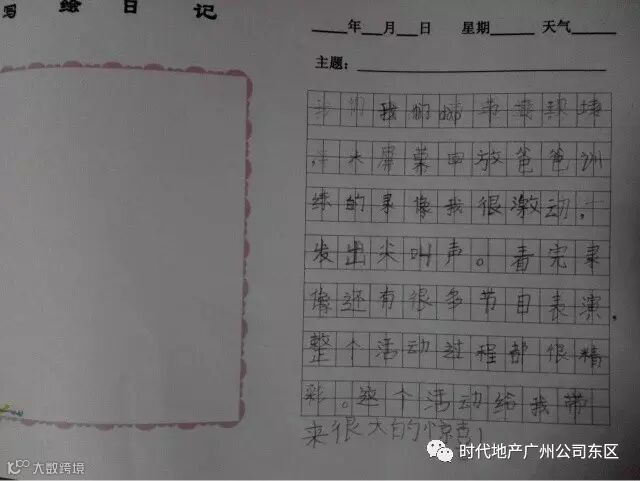 写 绘 日 记
____年___月___日 星期_____ 天气_____
主题：
我们
大屏幕中放爸爸训
练的录像我很激动，
发出尖叫声。看完录
像还有很多节目表演，
整个活动过程都很精
彩。这个活动给我带
来很大的惊喜！
时代地产广州公司东区
大数跨境